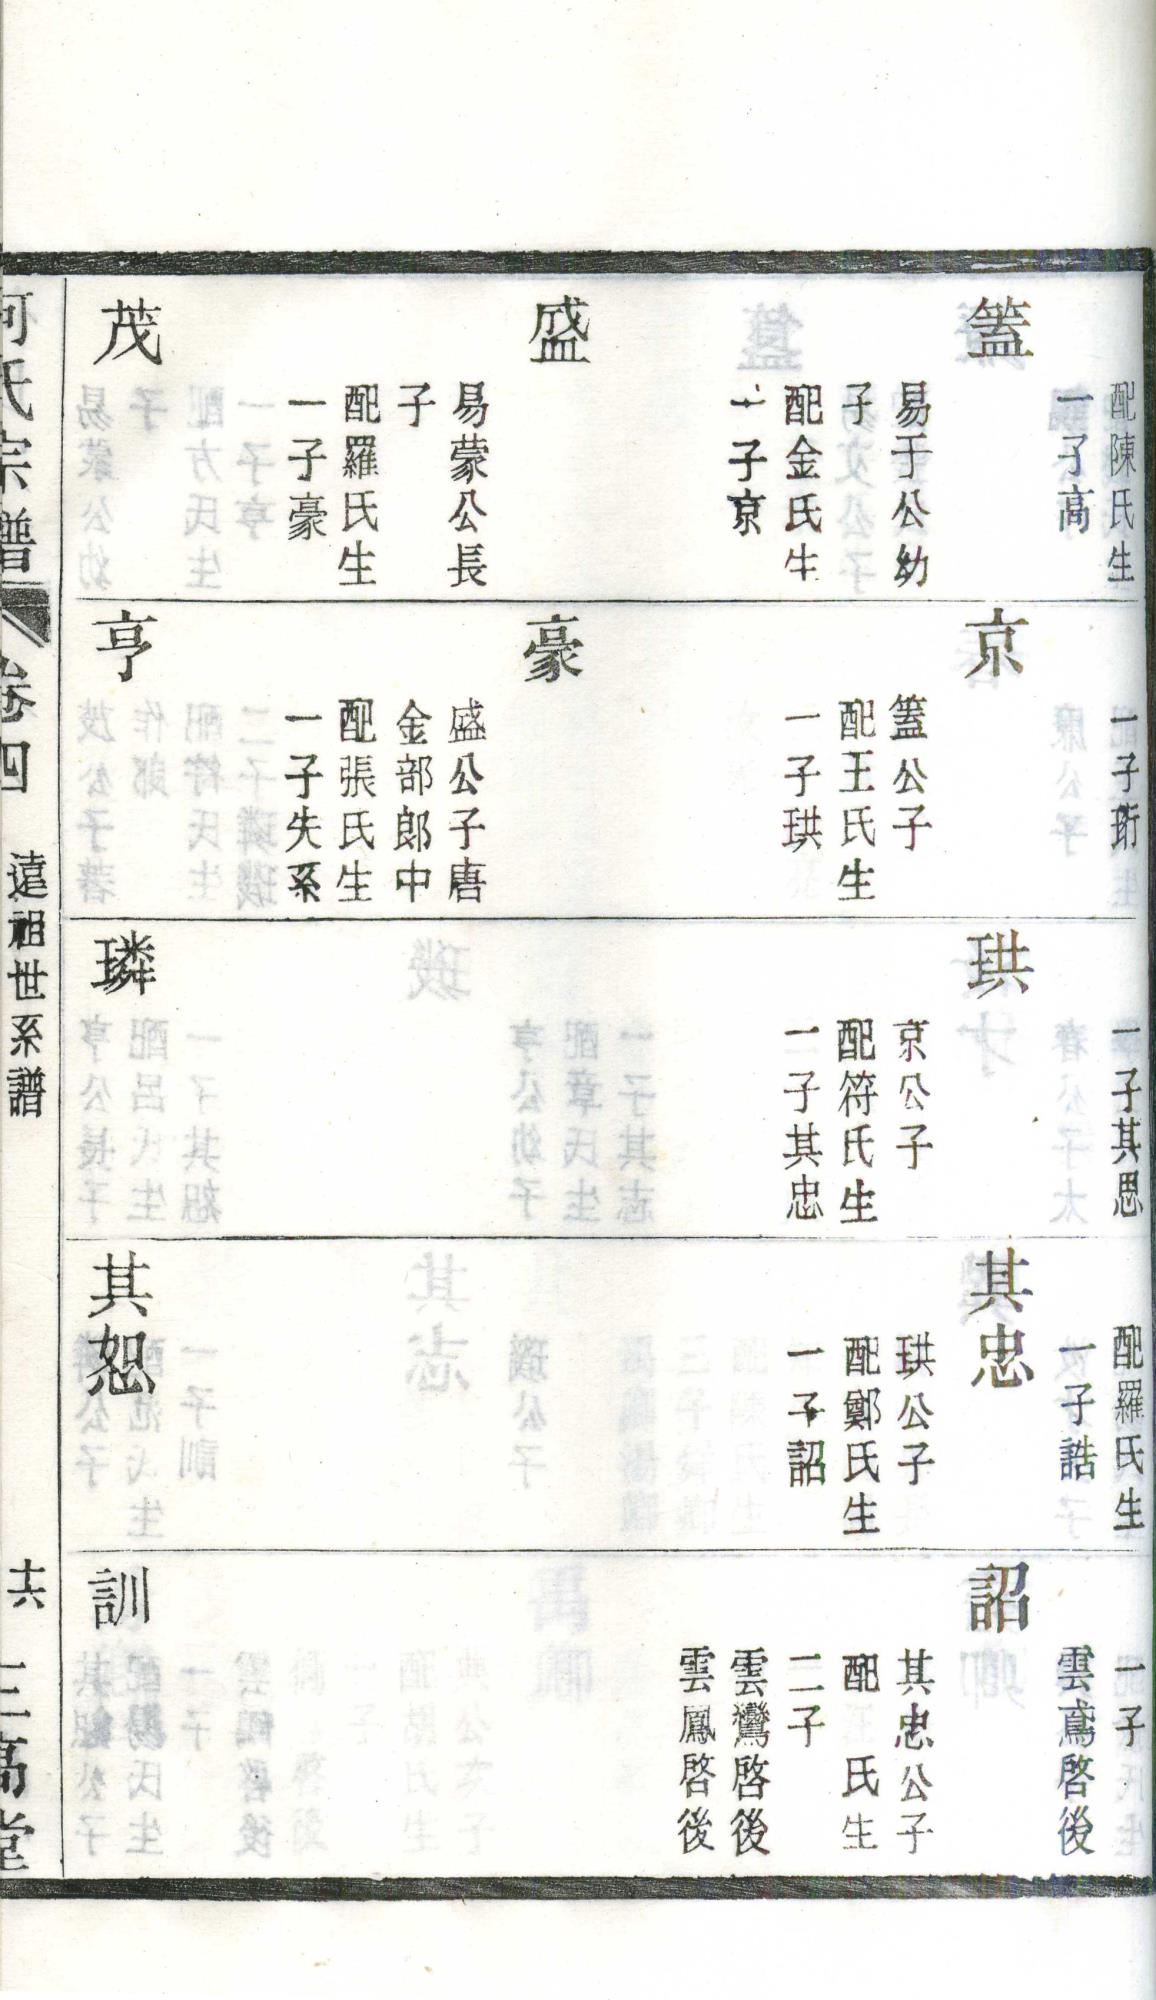 配陳氏生
一子高
簠
易于公幼
子
配金氏生
一子京
盛
易蒙公長
子
配羅氏生
一子豪
茂
一子珩
京
簠公子
配王氏生
一子珙
豪
盛公子唐
金部郎中
配張氏生
一子失系
亨
一子其思
珙
京公子
配符氏生
一子其忠
璘
配羅氏生
一子誥
其忠
珙公子
配鄭氏生
一子詔
其恕
一子
雲鳶啓後
詔
其忠公子
配　氏生
二子
雲鸞啓後
雲鳳啓後
訓
柯氏宗譜
卷四
遠祖世系譜
十六
三高堂